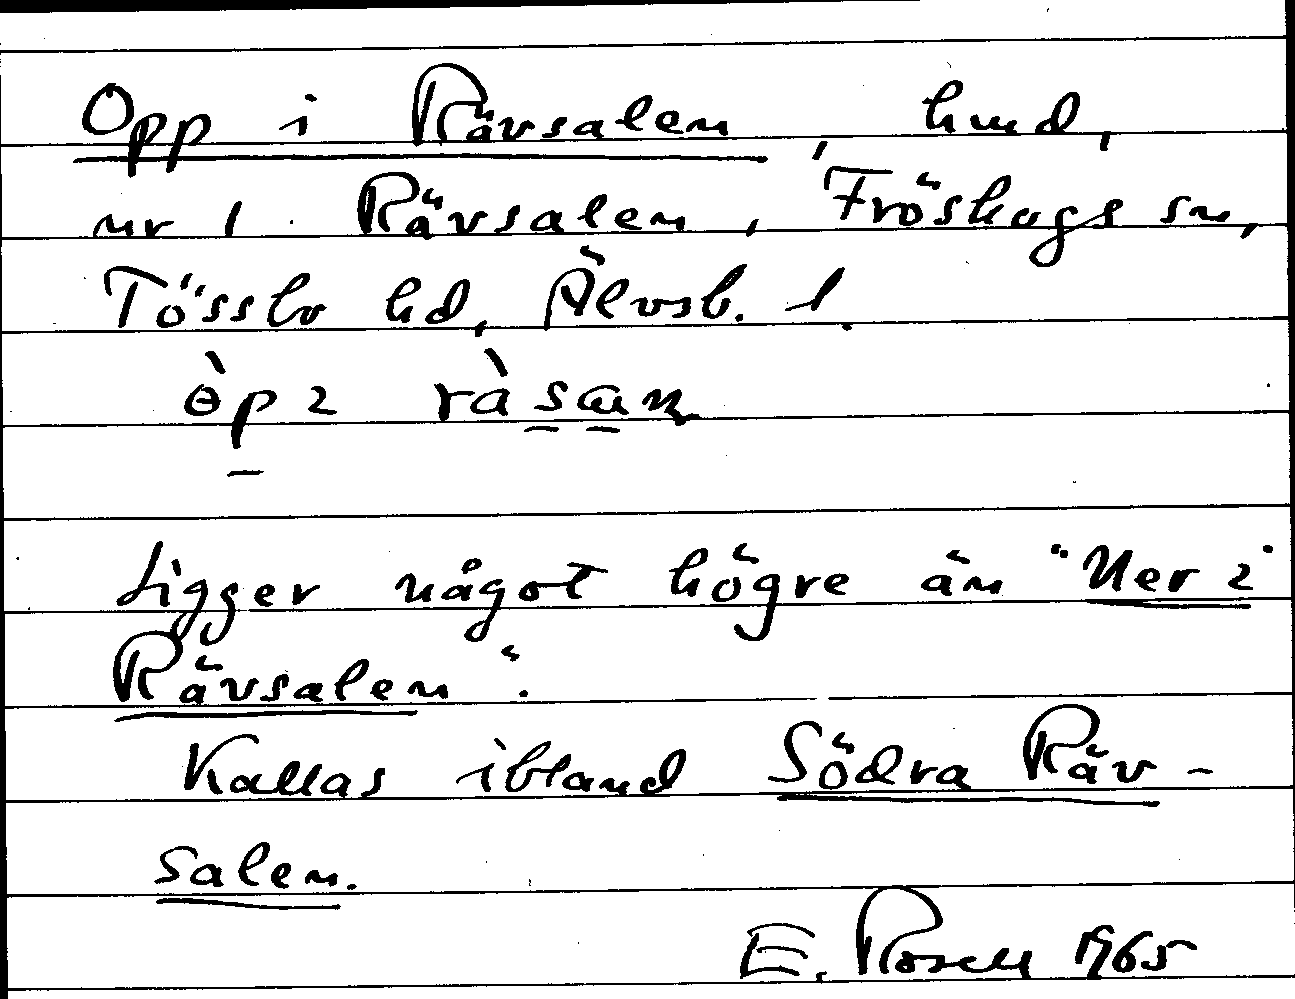 Opp i Rävsalen, hmd,
nr 1 Rävsalen, Fröskogs sn,
Tössbo hd, Älvsb. l.
Ligger något högre än "Ner i
Rävsalen".
Kallas ibland Södra Räv-
salen.
E. Rosell 1965